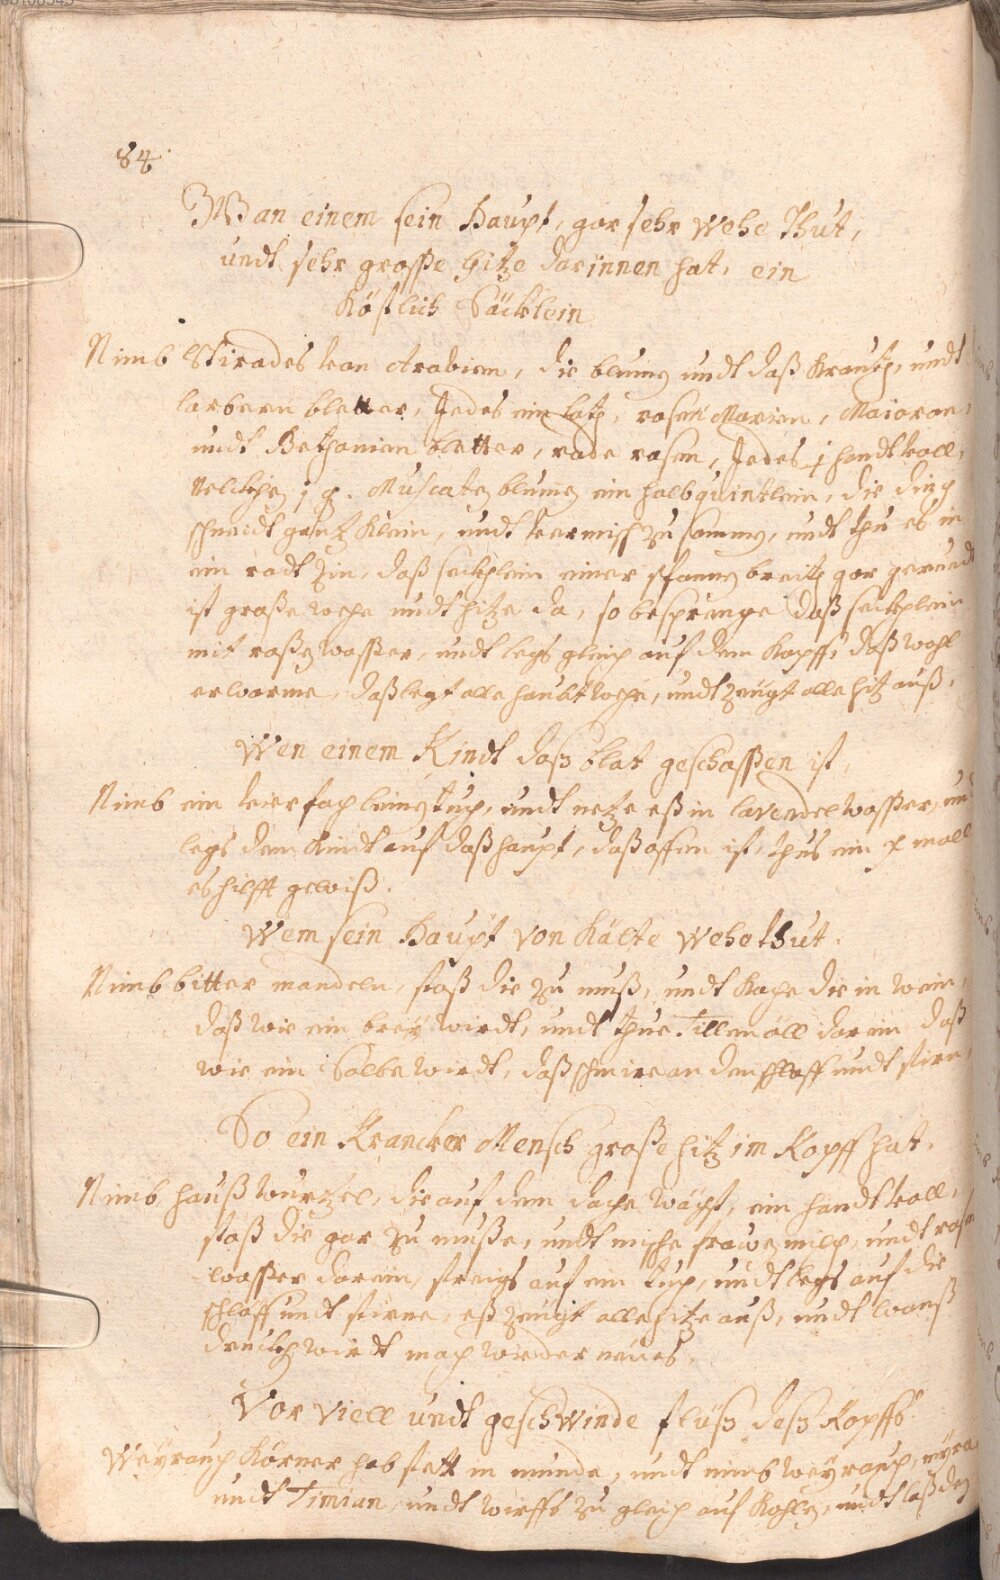 84.
Wan einem sein Haupt, gar sehr Wehe Thut,
undt sehr große hitze darinnen hat, ein
Köstlich Säcklein
Nimb Stirades von Arabien, die blumen undt daß Krauth, undt
larbern bletter, Jedes ein Loth, rosen Marien, Maioran,
undt Bethonien bletter, rode rosen, Jedes j handt voll,
Nelcken j q. Muscaten blumen ein halb quintlein, die ding
schneidt gantz Klein, undt vermisch zu samen, undt thu es in
ein rodt Zin, daß secklein einer spannen breith, gar
ist große wehe undt hitze da, so besprenge daß secklein
mit roßen waßer, undt legs gleich auf dem Kopff, daß wohl
erwarme, daß legt alle haubt wehe, undt Zeugt alle hitz auß.
Wen einem Kindt daß blat geschoßen ist,
Nimb ein vierfach leinen tuch, undt netze eß in lavendel waßer, und
legs dem Kindt auf daß haupt, daß offen ist, thus ein x moll
es hilfft gewiß.
Wem sein Haupt von Kälte Wehe thut.
Nimb bitter mandeln, stoß die zu muß, undt Koche die in wein,
daß wie ein breÿ wirdt, undt thue Tillen öll darein daß
wie ein Salbe wirdt, daß schmire an den schlaff undt stirn,
So ein Krancker Mensch große hitz im Kopff hat.
Nimb haußwurtzel, die auf dem dache wächst, ein handt voll,
stoß die gar zu muße, undt mische frawen milch, undt rosen
waßer darein, streichs auf ein tuch, undt legs auf die
schlaff undt stirne, eß zeugt alle hitze auß, undt wanß
drucken wirdt mach wieder neues.
Vor viell undt geschwinde flüß deß Kopffs.
Weÿrauch Körner hab stett in munde, undt nimb weÿrauch,
undt Timian, undt wirffs zu gleich auf Kohlen, undt laß den